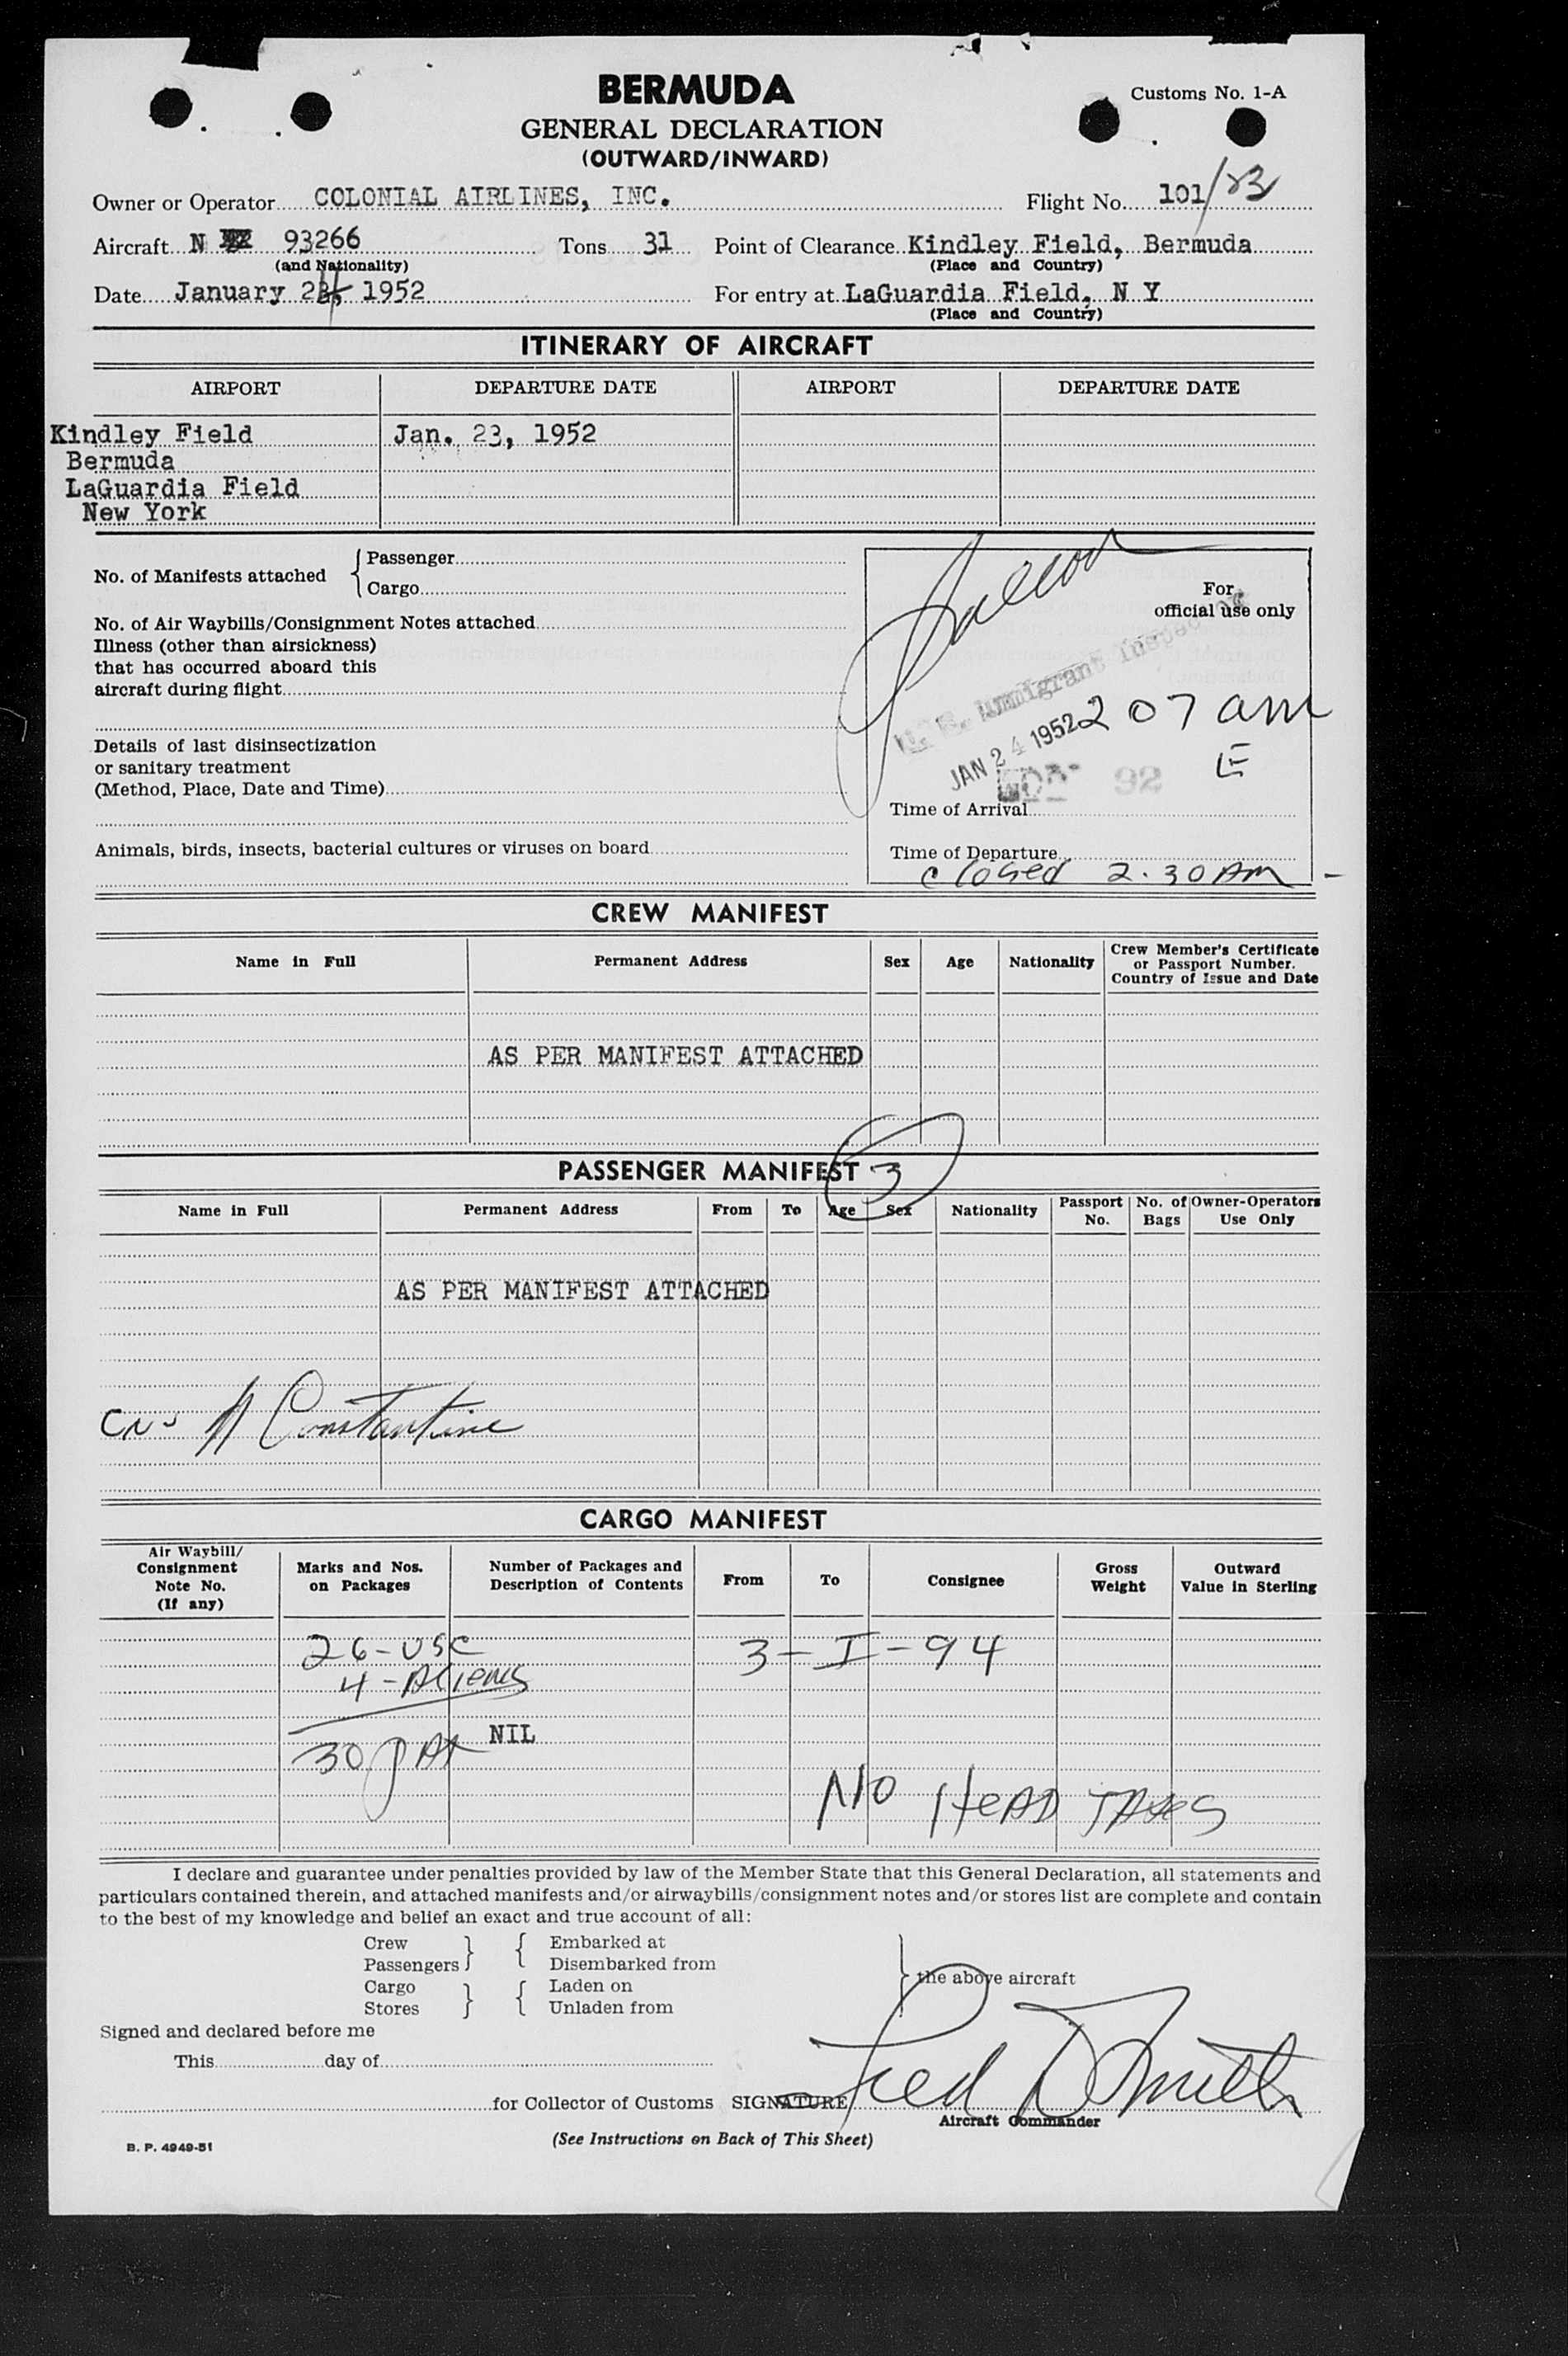 BERMUDA
Customs No. 1-A
GENERAL DECLARATION
(OUTWARD/INWARD)
Owner or Operator COLONIAL AIRLINES, INC. Flight No. 101/23
Aircraft N 93266 Tons 31 Point of Clearance Kindley Field, Bermuda
(and Nationality) (Place and Country)
Date January 24, 1952 For entry at LaGuardia Field, N Y
(Place and Country)
ITINERARY OF AIRCRAFT
AIRPORT DEPARTURE DATE AIRPORT DEPARTURE DATE
Kindley Field Jan. 23, 1952
Bermuda
LaGuardia Field
New York
No. of Manifests attached { Passenger
Cargo
For
official use only
No. of Air Waybills/Consignment Notes attached
Illness (other than airsickness)
that has occurred aboard this
aircraft during flight
U. S. Immigrant Inspector
JAN 24 1952 2 07 am
E
92
Details of last disinsectization
or sanitary treatment
(Method, Place, Date and Time)
Time of Arrival
Animals, birds, insects, bacterial cultures or viruses on board
Time of Departure
closed 2.30 AM -
CREW MANIFEST
Name in Full Permanent Address Sex Age Nationality Crew Member's Certificate
or Passport Number.
Country of Issue and Date
AS PER MANIFEST ATTACHED
PASSENGER MANIFEST 3
Name in Full Permanent Address From To Age Sex Nationality Passport No. No. of Bags Owner-Operators Use Only
AS PER MANIFEST ATTACHED
Constantine
CARGO MANIFEST
Air Waybill/
Consignment
Note No.
(If any)
Marks and Nos.
on Packages
Number of Packages and
Description of Contents
From To Consignee
Gross
Weight
Outward
Value in Sterling
26-USC 3-I-94
4-Aliens
NIL
30 PAX
NO HEAD TAXES
I declare and guarantee under penalties provided by law of the Member State that this General Declaration, all statements and
particulars contained therein, and attached manifests and/or airwaybills/consignment notes and/or stores list are complete and contain
to the best of my knowledge and belief an exact and true account of all:
Crew } { Embarked at
Passengers Disembarked from
} the above aircraft
Cargo } { Laden on
Stores Unladen from
Signed and declared before me
This day of
for Collector of Customs SIGNATURE Fred D Smith
Aircraft Commander
(See Instructions on Back of This Sheet)
B. P. 4949-51